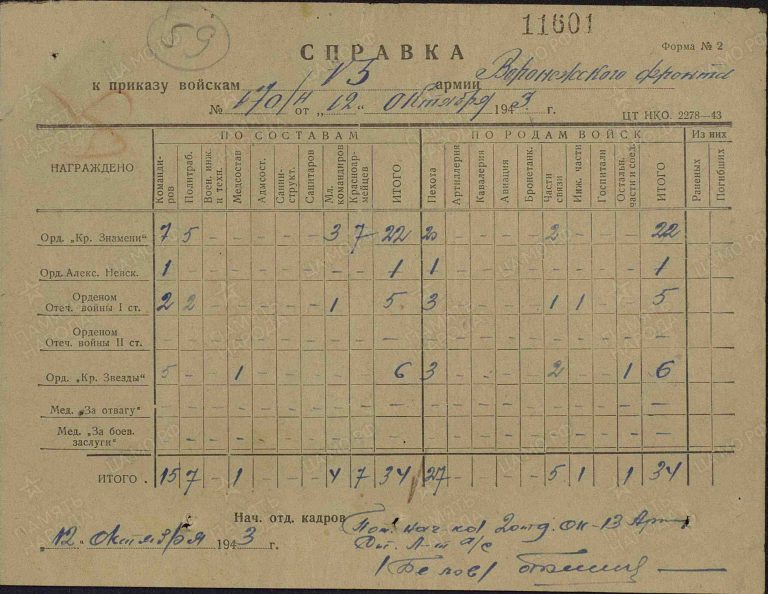 59
11601
СПРАВКА
Форма № 2
к приказу войскам армии Воронежского фронта
№ 170/н от „12“ октября 1943 г.
ЦТ НКО. 2278—43
НАГРАЖДЕНО
ПО СОСТАВАМ
ПО РОДАМ ВОЙСК
Из них
Команди-ров
Политраб.
Воен. инж. и техн.
Медсостав
Адмсост.
Санин-структ.
Санитаров
Мл. командиров
Красноар-мейцев
ИТОГО
Пехота
Артиллерия
Кавалерия
Авиация
Бронетанк.
Части связи
Инж. части
Госпитали
Остальн. части и соед.
ИТОГО
Раненых
Погибших
Орд. „Кр. Знамени“ 7 5 - - - - - 3 7 22 20 - - - - 2 - - - 22
Орд. Алекс. Невск. 1 - - - - - - - - 1 1 - - - - - - - - 1
Орденом
Отеч. войны I ст. 2 2 - - - - - 1 - 5 3 - - - - 1 1 - - 5
Орденом
Отеч. войны II ст. - - - - - - - - - - - - - - - - - - - -
Орд. „Кр. Звезды“ 5 - - 1 - - - - - 6 3 - - - - 2 - - 1 6
Мед. „За отвагу“ - - - - - - - - - - - - - - - - - - - -
Мед. „За боев.
заслуги“ - - - - - - - - - - - - - - - - - - - -
ИТОГО . 15 7 - 1 - - - 4 7 34 27 - - - - 5 1 - 1 34
Нач. отд. кадров Пом. нач-ка 2 отд. ОК-13 Арм
„12“ октября 1943 г. Ст. Л-т а/с
/Белов/